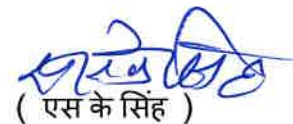 ( एस के सिंह )